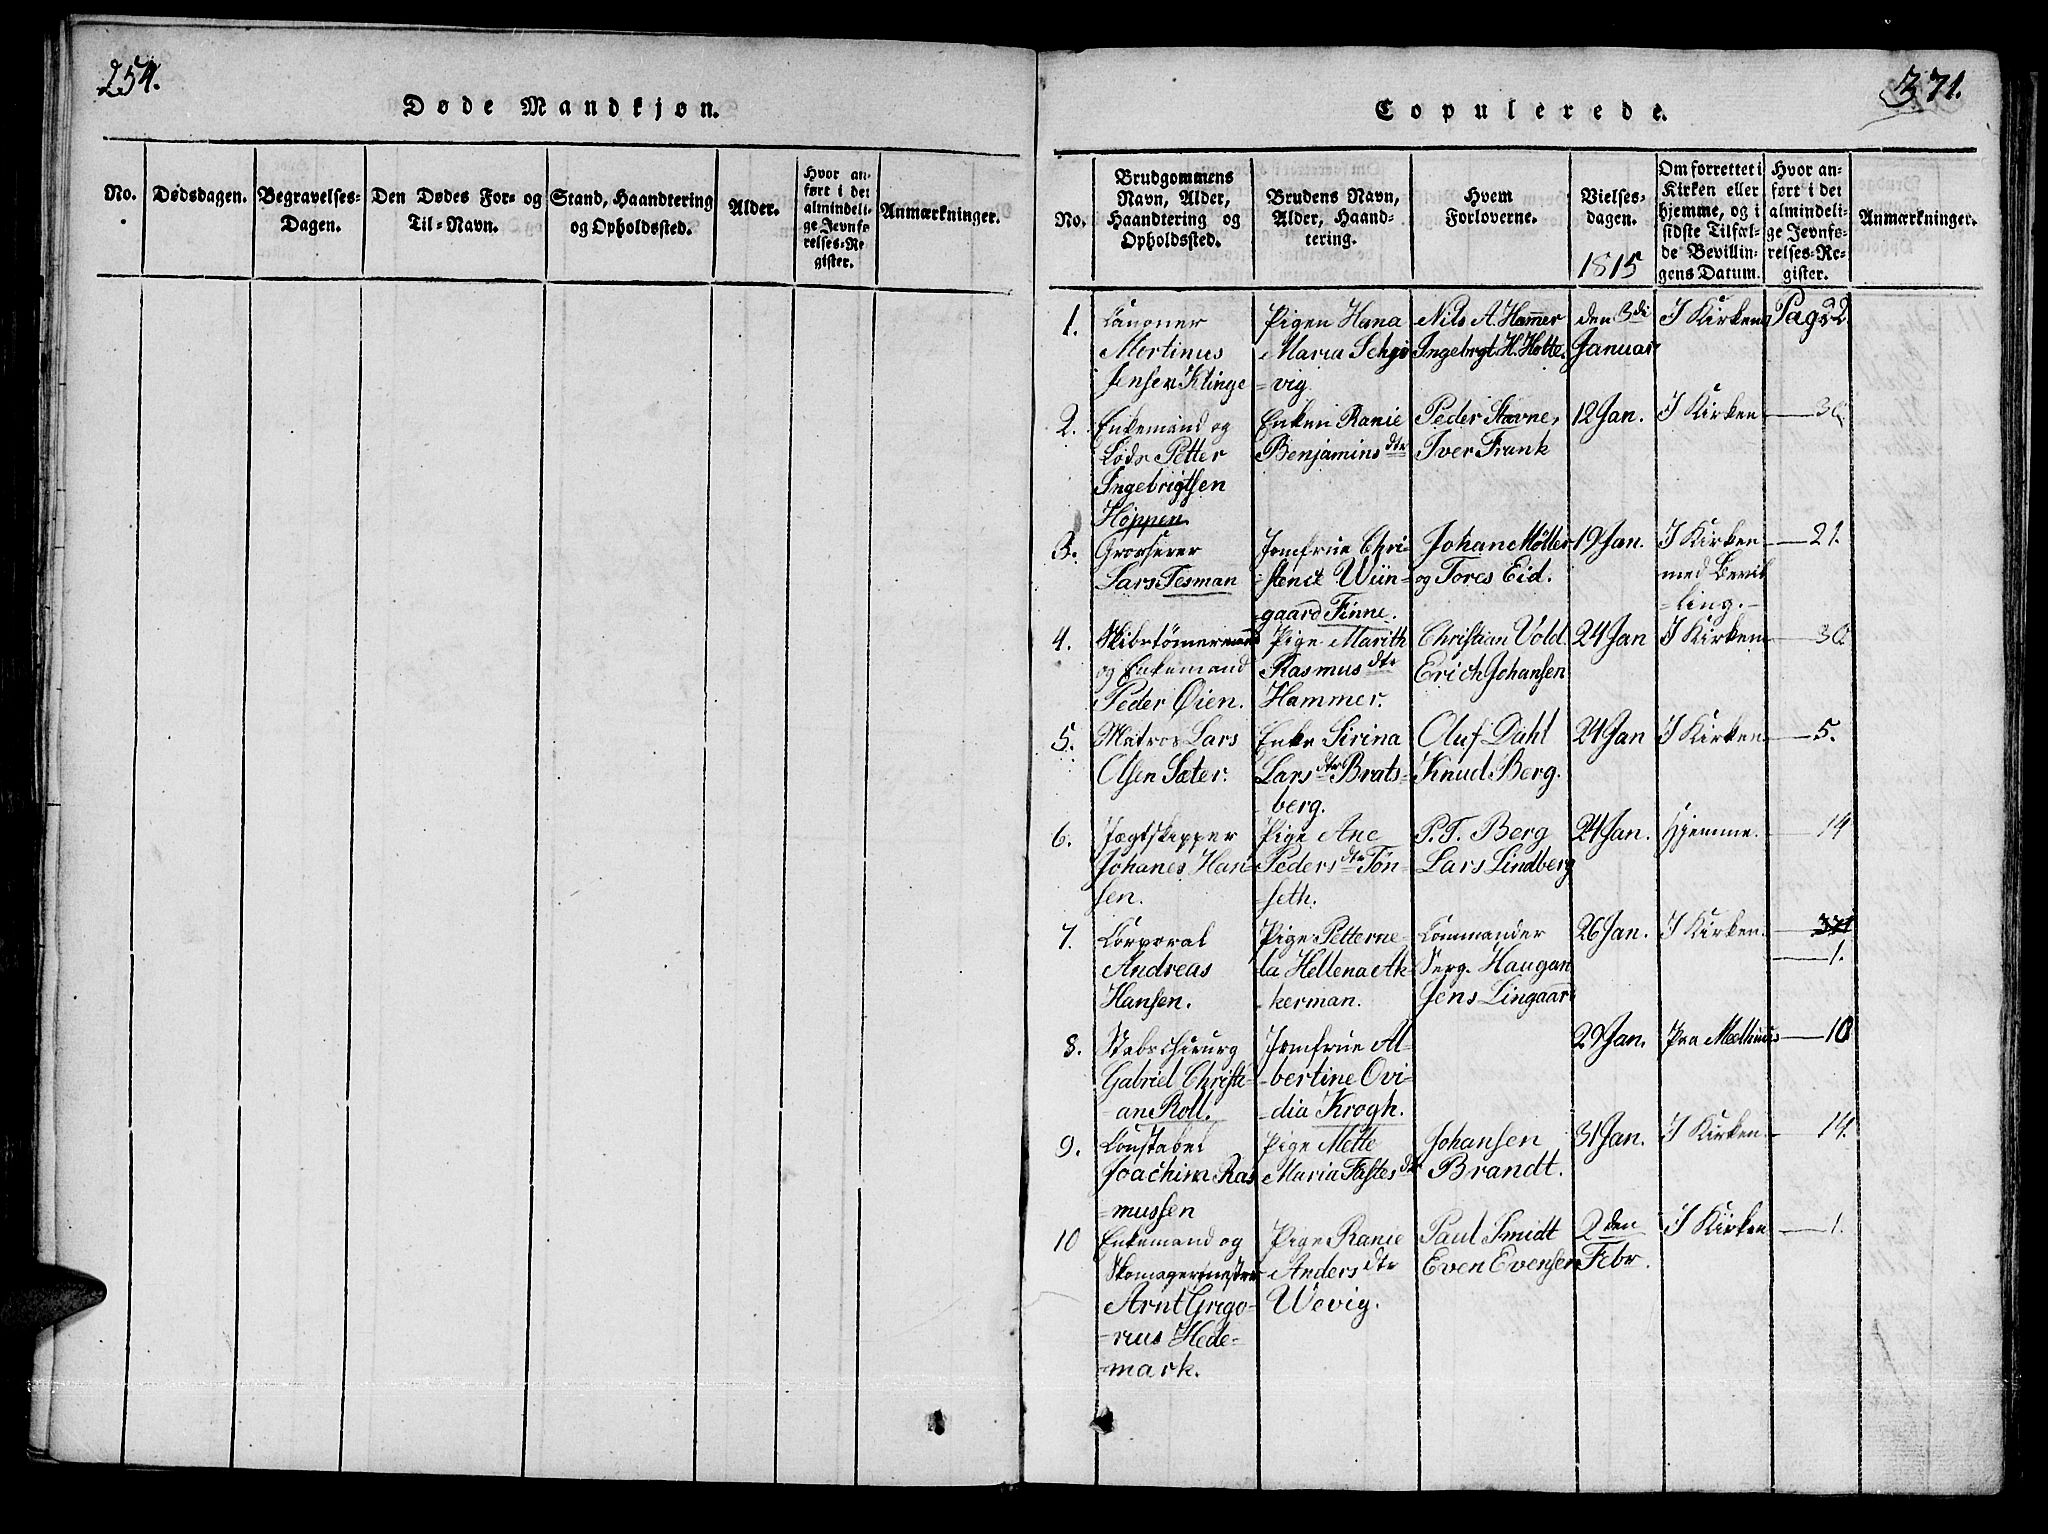 254.
Døde Mandkjøn.
No.
Dødsdagen.
Begravelses-
Dagen.
Den Dødes For- og
Til-Navn.
Stand, Haandtering
og Opholdssted.
Alder.
Hvor an-
ført i det
almindeli-
ge Jevnfø-
relses-Re-
gister.
Anmærkninger.
371.
Copulerede.
No.
Brudgommens
Navn, Alder,
Haandtering og
Opholdssted.
Brudens Navn,
Alder, Haand-
tering.
Hvem
Forloverne.
Vielses-
dagen.
1815
Om forrettet i
Kirken eller
hjemme, og i
sidste Tilfæl-
de Bevillin-
gens Datum.
Hvor an-
ført i det
almindeli-
ge Jevnfø-
relses-Re-
gister.
Anmærkninger.
1.
Canoner
Mortinus
Jensen Klinge
Pigen Hana
Maria Schjø
-vig.
Nils A. Hammer
Ingebrgt. H. Holte.
den 3di
Januar
I Kirken
Pag. 22.
2.
Enkemand og
Lods Petter
Ingebrigtsen
Høppen.
Enken Ranie
Benjamins dtr
Peder Stavne,
Iver Frank
12 Jan.
I Kirken
30.
3.
Grosserer
Lars Tesman
Jomfrue Chri-
stence Wiin-
gaard Finne.
Johan Møller
og Tores Eid.
19 Jan.
I Kirken
med Bevil
-ling.
21.
4.
Skibstømermand
og Enkemand
Peder Øien.
Pige Marith
Rasmus dtr
Hammer.
Christian Vold
Erich Johansen
24 Jan
I Kirken
30.
5.
Matros Lars
Olsen Sæter.
Enke Sirina
Lars dtr Brats-
-berg.
Oluf Dahl
Knud Berg.
24 Jan
I Kirken
5.
6.
Jægtskipper
Johanes Han-
sen.
Pige Ane
Peders dtr Tøn-
-seth.
P. T. Berg
Lars Lindberg
24 Jan.
Hjemme.
14
7.
Corporal
Andreas
Hansen.
Pige Petterne-
la Hellena Ak-
-kerman.
Commander
Serg. Haugan
Jens Lingaard
26 Jan.
I Kirken.
371
1.
8.
Stabschirurg
Gabriel Christi-
-an Roll.
Jomfrue Al-
-bertine Ovi-
-dia Krogh.
29 Jan.
Paa
10
9.
Constabel
Joachim Ras
-mussen
Pige Mette
Maria Fastes dtr
Johansen
Brandt.
31 Jan.
I Kirken
14.
10
Enkemand og
Skomagermester
Arnt Grego-
-rius Hede-
-mark.
Pige Ranie
Anders dtr
Wevig.
Paul Smidt
Even Evensen
2den
Febr.
I Kirken
1.